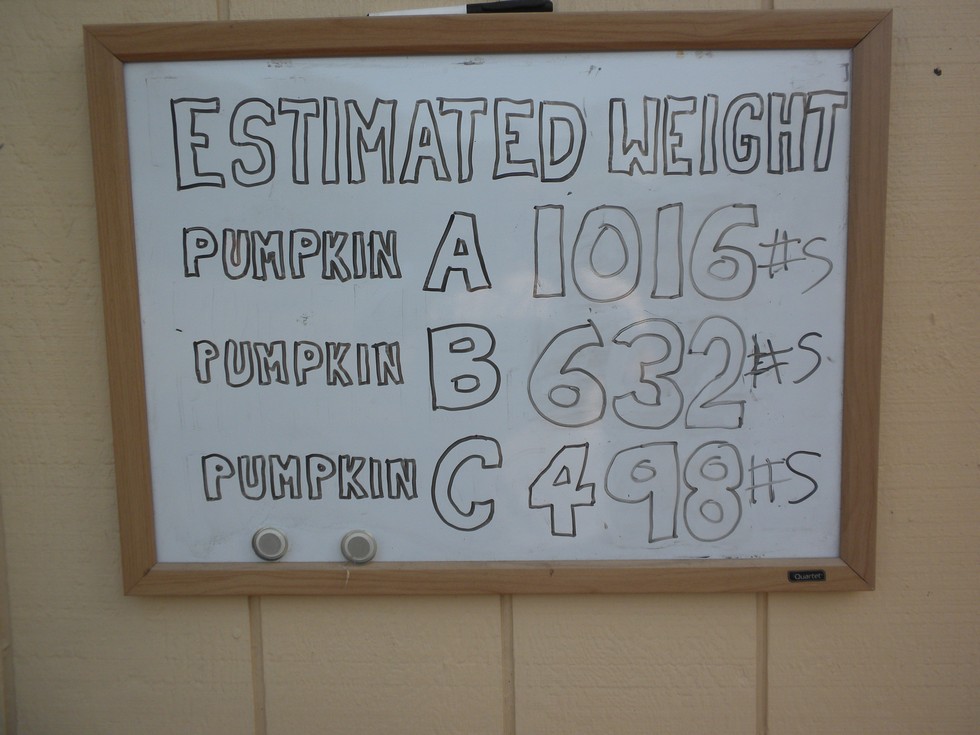 ESTIMATED WEIGHT
PUMPKIN A 1016 #S
PUMPKIN B 632 #S
PUMPKIN C 498 #S
Quartet